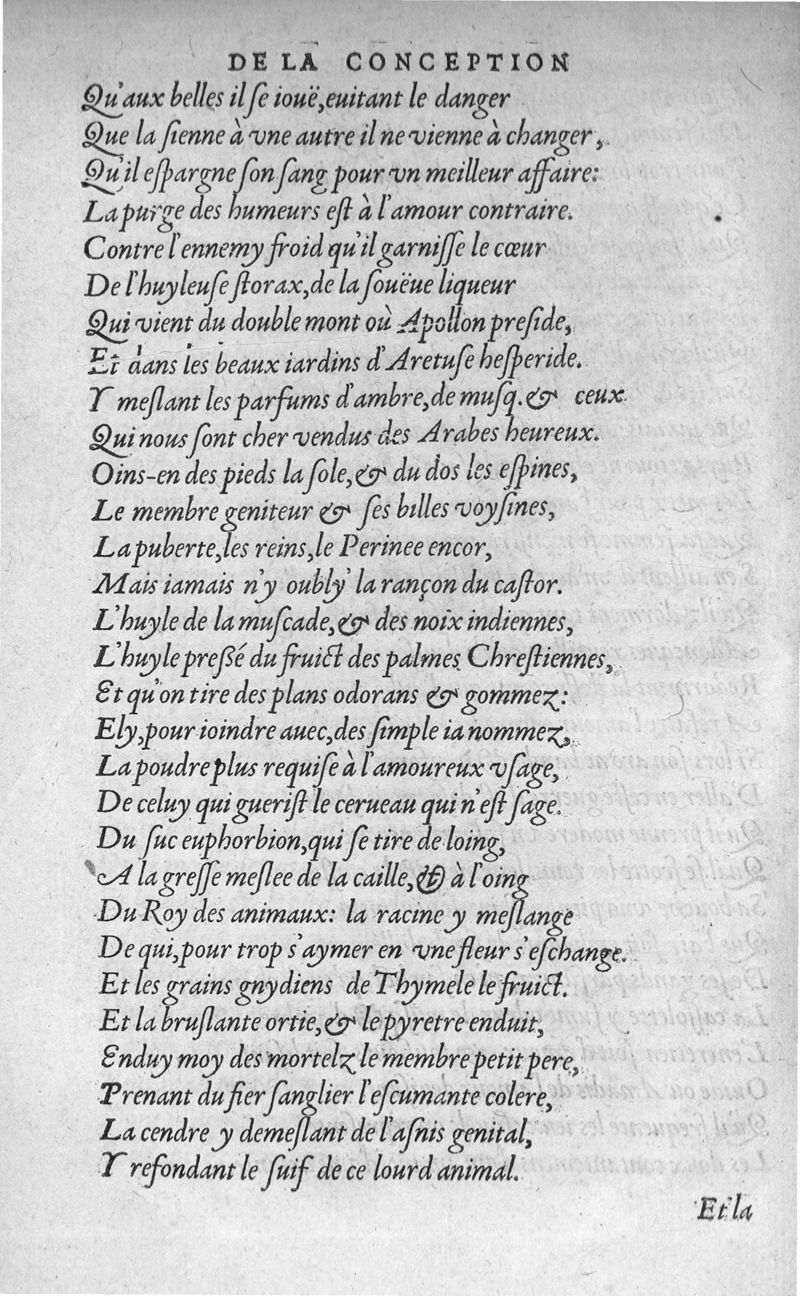 DE LA CONCEPTION
Qu'aux belles il ſe iouë, euitant le danger
Que la ſienne à vne autre il ne vienne à changer,
Qu'il eſpargne ſon ſang pour vn meilleur affaire:
La purge des humeurs eſt à l'amour contraire.
Contre l'ennemy froid qu'il garniſſe le cœur
De l'huyleuſe ſtorax, de la ſouëue liqueur
Qui vient du double mont où Apollon preſide,
Et dans les beaux iardins d'Aretuſe heſperide.
Y meſlant les parfums d'ambre, de muſq. & ceux
Qui nous ſont cher vendus des Arabes heureux.
Oins-en des pieds la ſole, & du dos les eſpines,
Le membre geniteur & ſes billes voyſines,
La puberte, les reins, le Perinee encor,
Mais iamais n'y oubly' la rançon du caſtor.
L'huyle de la muſcade, & des noix indiennes,
L'huyle preſſé du fruict des palmes Chreſtiennes,
Et qu'on tire des plans odorans & gommez:
Ely, pour ioindre auec, des ſimple ia nommez,
La poudre plus requiſe à l'amoureux vſage,
De celuy qui gueriſt le cerueau qui n'eſt ſage.
Du ſuc euphorbion, qui ſe tire de loing,
A la greſſe meſlee de la caille, & à l'oing
Du Roy des animaux: la racine y meſlange
De qui, pour trop s'aymer en vne fleur s'eſchange.
Et les grains gnydiens de Thymele le fruict.
Et la bruſlante ortie, & le pyretre enduit,
Enduy moy des mortelz le membre petit pere,
Prenant du fier ſanglier l'eſcumante colere,
La cendre y demeſlant de l'aſnis genital,
Y refondant le ſuif de ce lourd animal.
Et la